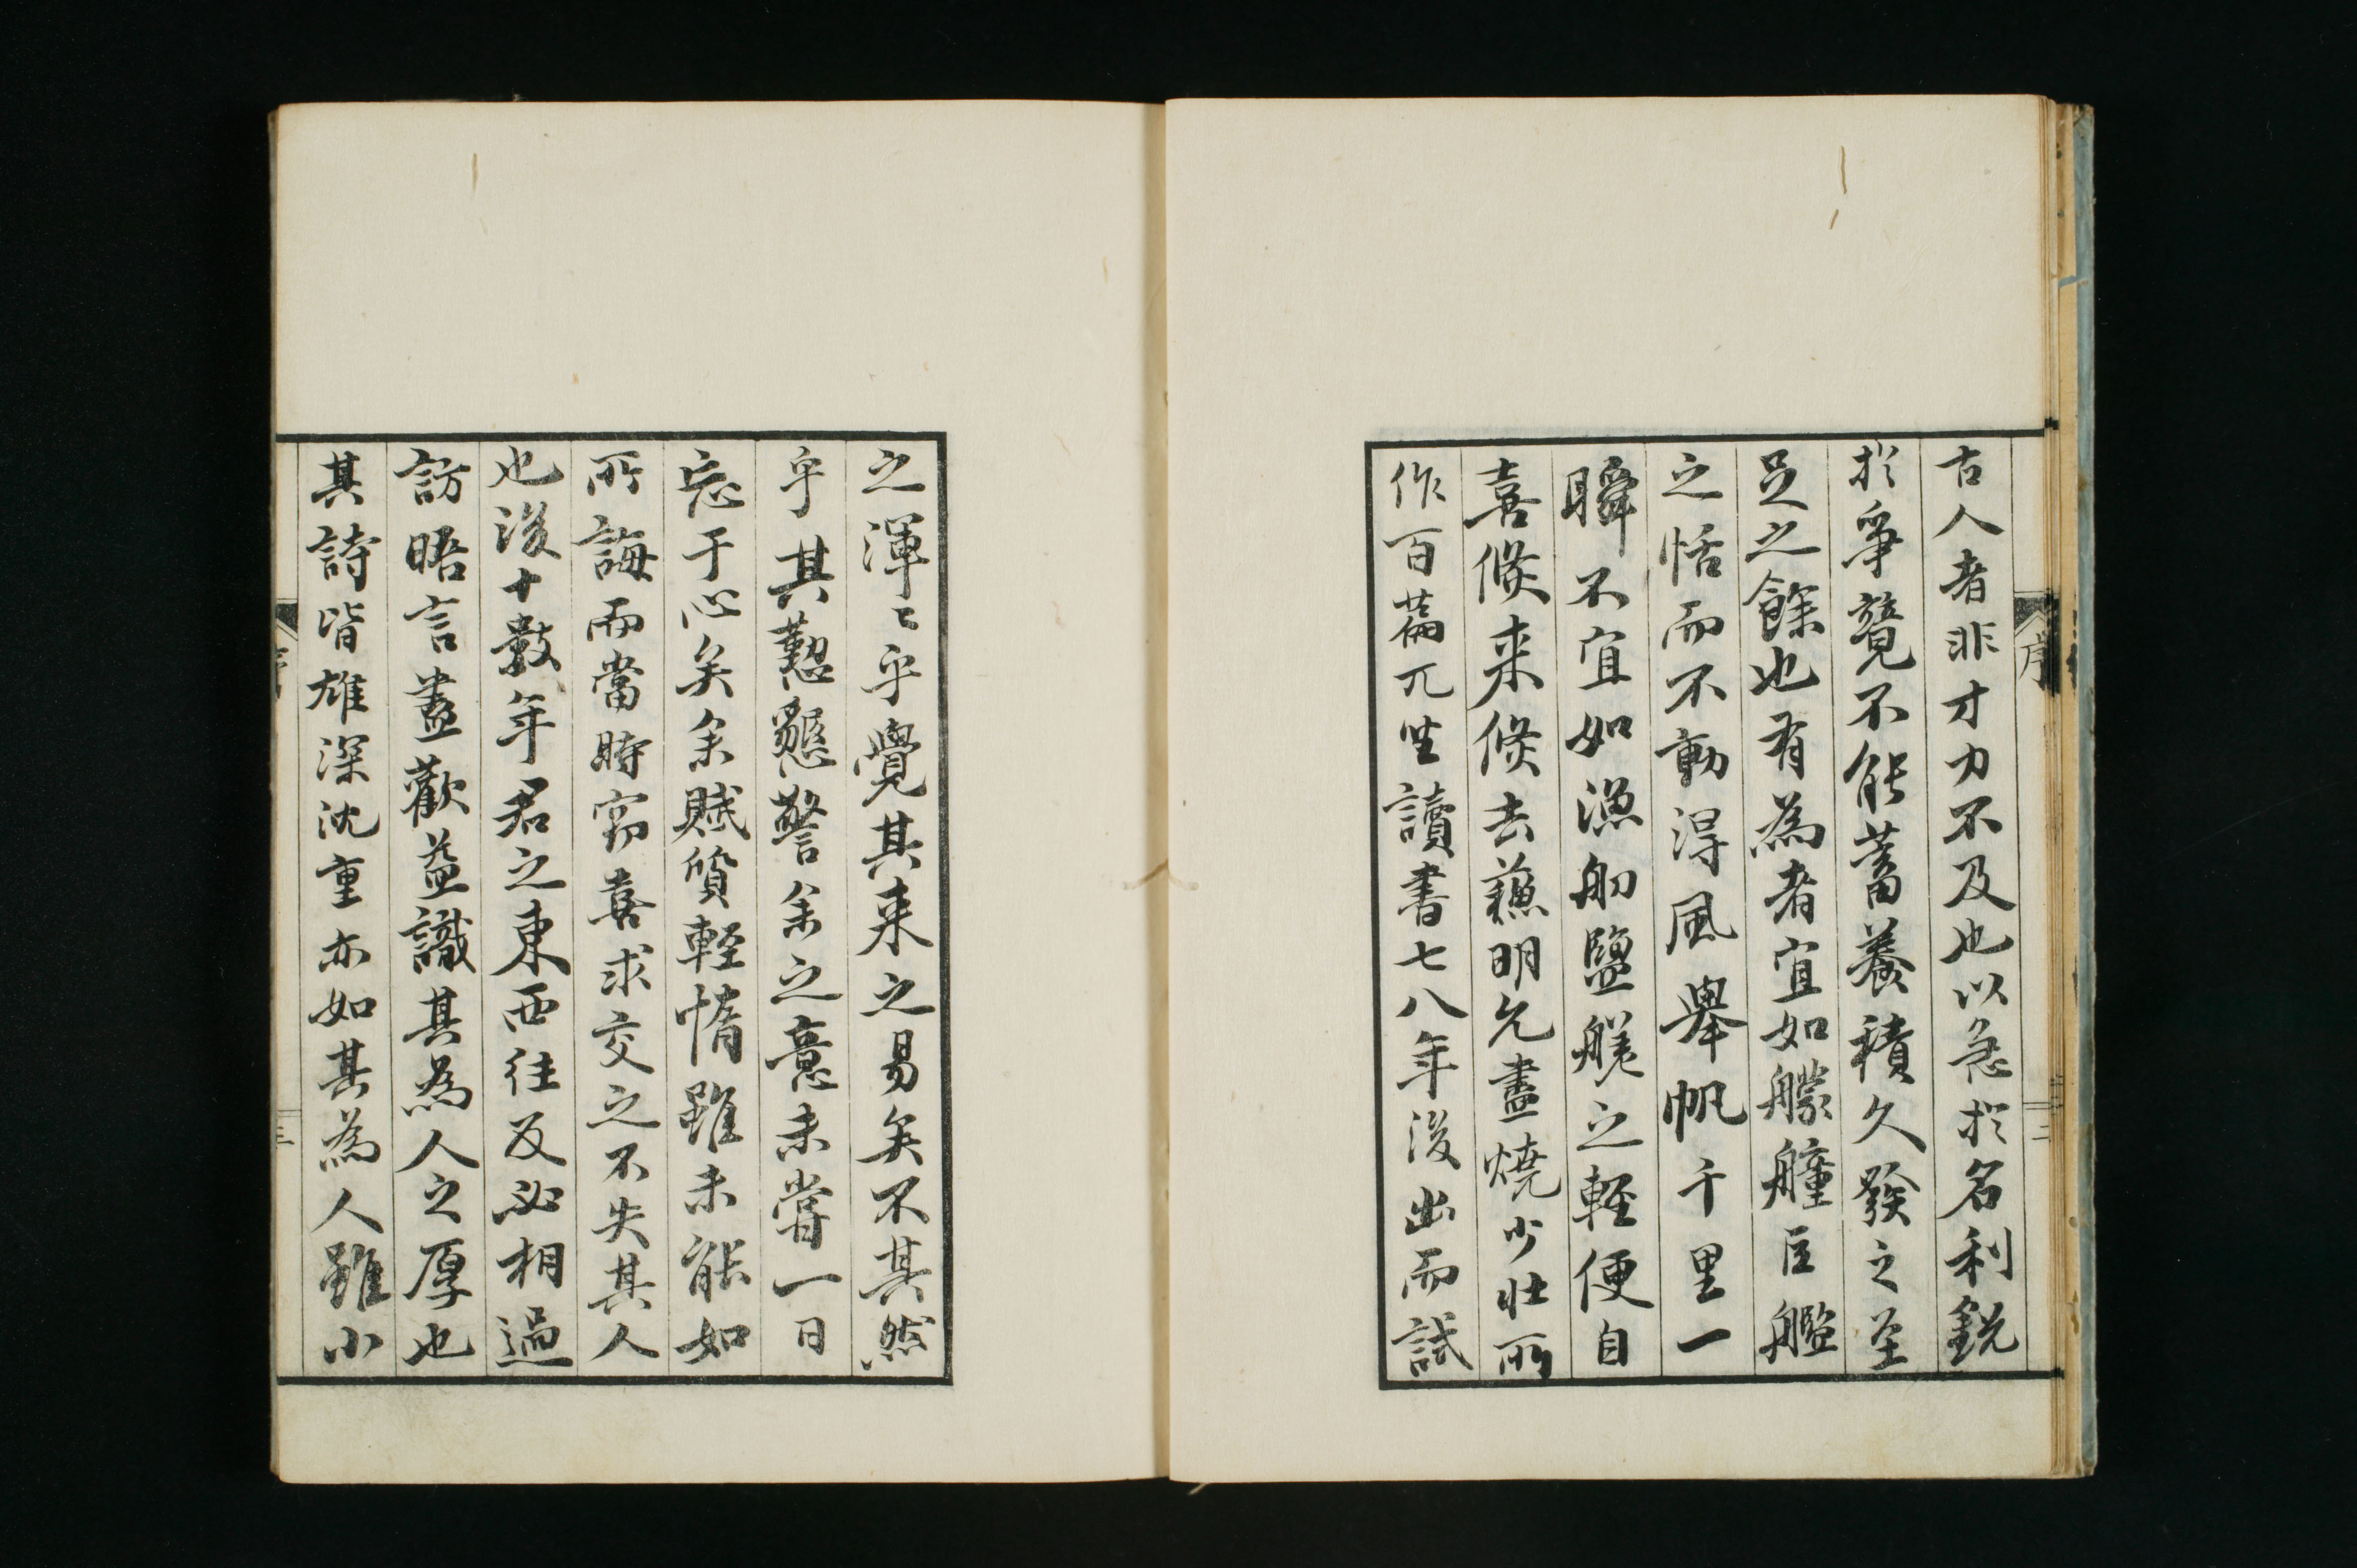 古人者非才力不及也以急於名利鋭
於爭競不能蓄養積久發之至
足之餘也有為者宜如艨艟巨艦
之恬而不動得風舉帆千里一
瞬不宜如漁舠鹽艖之輕便自
喜倐来倐去蘓明允盡燒少壯所
作百篇兀坐讀書七八年後出而試
之渾〻乎覺其来之易矣不其然
乎其懃懇警余之意未嘗一日
忘于心矣余賦質輕惰雖未能如
所誨而當時竊喜求交之不失其人
也後十數年君之東西往反必相過
訪晤言盡歡益識其為人之厚也
其詩皆雄深沈重亦如其為人雖小
序
二
三